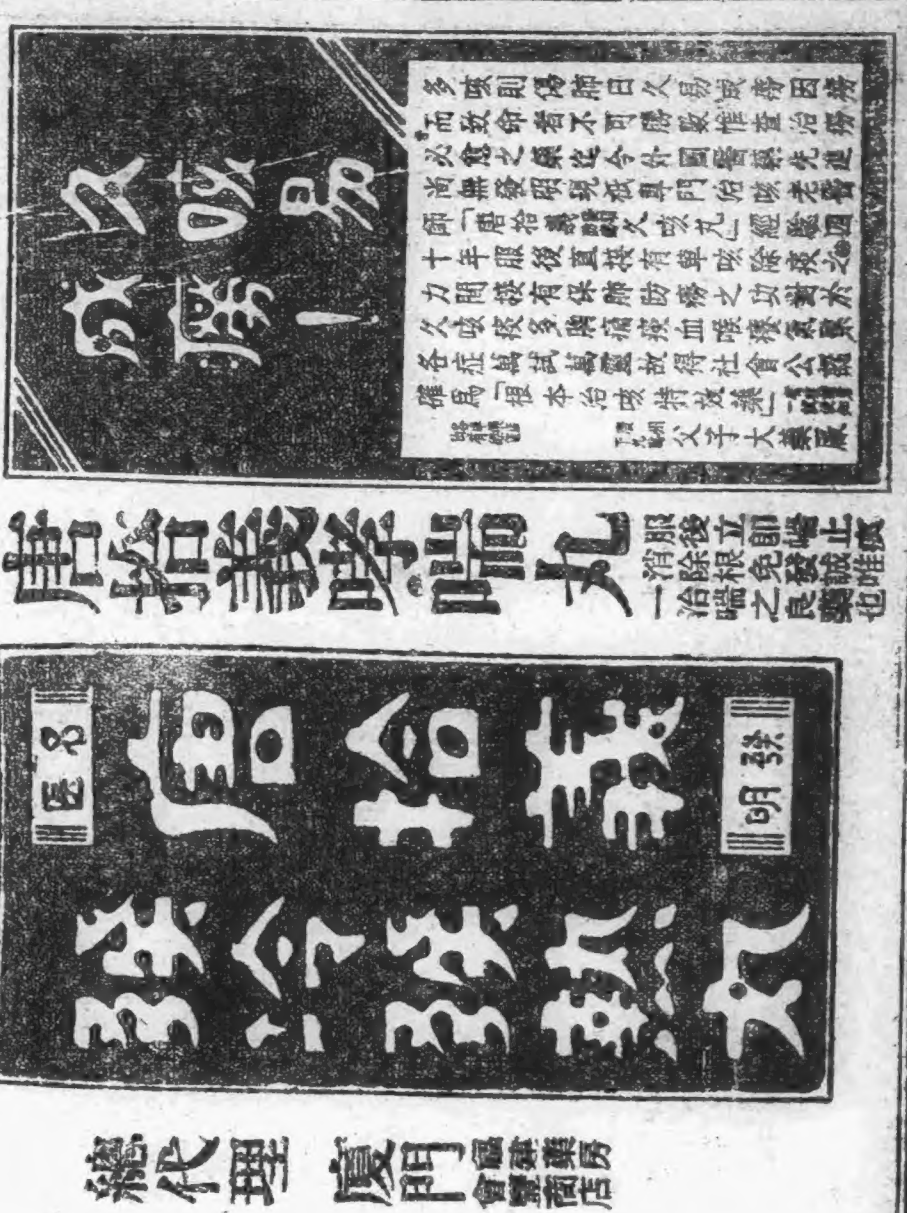 久咳易
成癆！
多咳則傷肺日久易成癆因癆
而致命者不可勝數惟查治癆
必愈之藥迄今外國醫藥先進
尚無發明現我專門治咳老醫
師「唐拾義久咳丸」經驗四
十年服後直接有單咳除痰之
力間接有保肺防癆之功對於
久咳痰多胸痛痰血喉癢氣緊
各症萬試萬靈故得社會公認
確爲「根本治咳特效藥」
父子大藥廠
唐拾義哮喘丸
服後立即喘止痰
消除根免發誠唯
一治喘之良藥也
名医
唐拾義
發明
發冷發熱丸
總代理 廈門
福建藥房
會靈商店